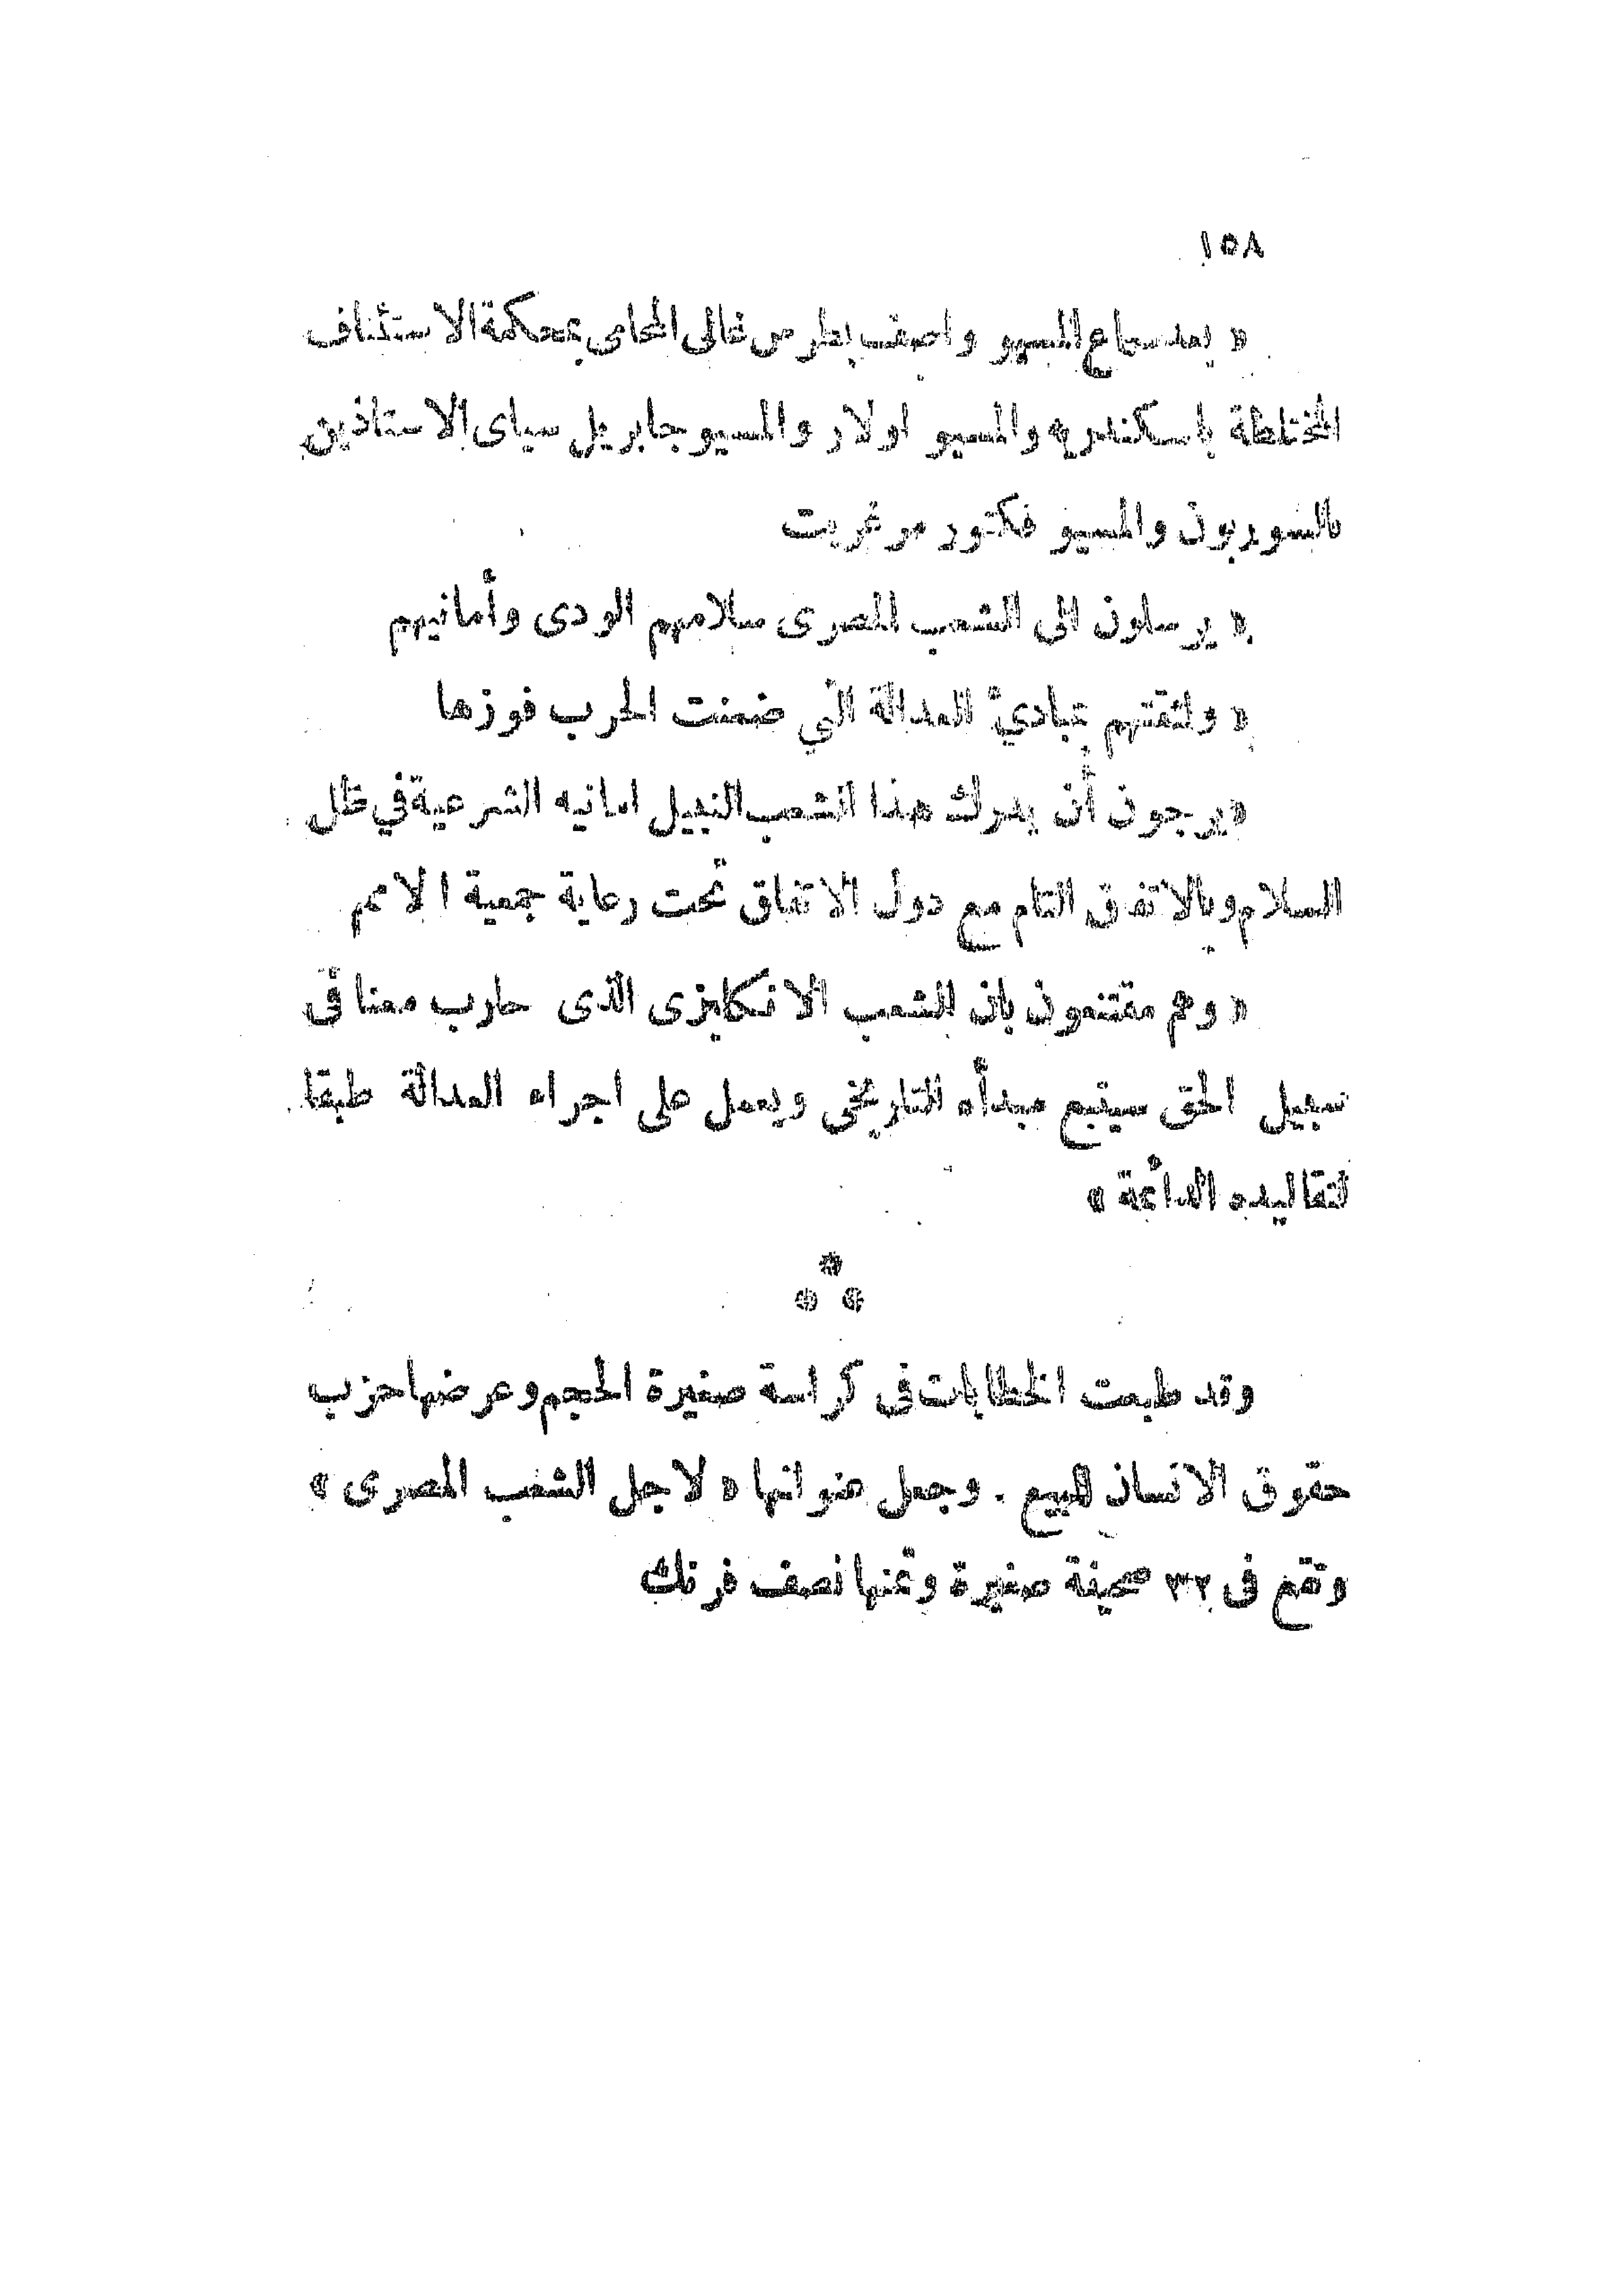 ١٥٨
« بعد سماع المسيو واصف بطرس غالى المحامى بمحكمة الاستئناف
المختلطة باسكندريه والمسيو اولار والمسيو جابريل سياى الاستاذين
بالسوربون والمسيو فكتور مرغريت
« يرسلون الى الشعب المصرى سلامهم الودى وأمانيهم
« ولثقتهم بمبادئ العدالة التي ضمنت الحرب فوزها
« يرجون أن يدرك هذا الشعب النبيل امانيه الشرعية في ظل
السلام وبالاتفاق التام مع دول الاتفاق تحت رعاية جمعية الامم
« وهم مقتنعون بان الشعب الانكليزى الذى حارب معنا فى
سبيل الحق سيتبع مبدأه التاريخى ويعمل على اجراء العدالة طبقا
لتقاليده الدائمة »
***
وقد طبعت الخطابات فى كراسة صغيرة الحجم وعرضها حزب
حقوق الانسان للبيع . وجعل عنوانها « لاجل الشعب المصرى »
وتقع فى ٣٢ صحيفة صغيرة وثمنها نصف فرنك